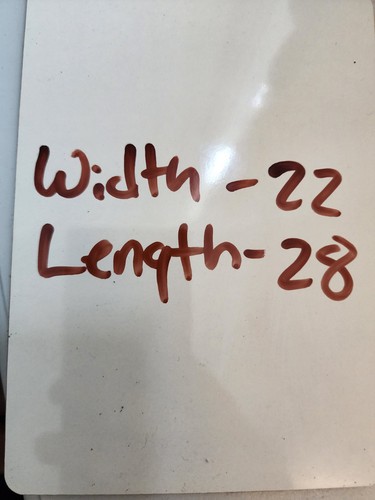 Width - 22
Length - 28